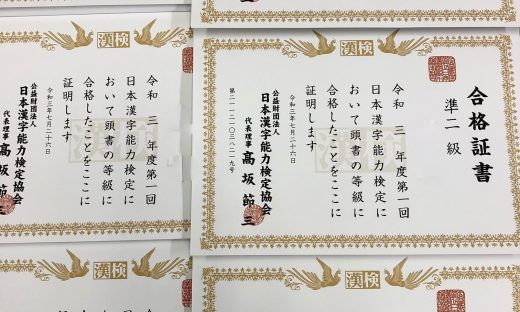 漢検
合格証書
準二級
令和 三 年度第一回
日本漢字能力検定に
おいて頭書の等級に
合格したことをここに
証明します
令和三年七月二十六日
公益財団法人
日本漢字能力検定協会
代表理事 髙坂節三
漢検
令和 三 年度第一回
日本漢字能力検定に
おいて頭書の等級に
合格したことをここに
証明します
令和三年七月二十六日
公益財団法人
日本漢字能力検定協会
代表理事 髙坂節三
漢検
漢検